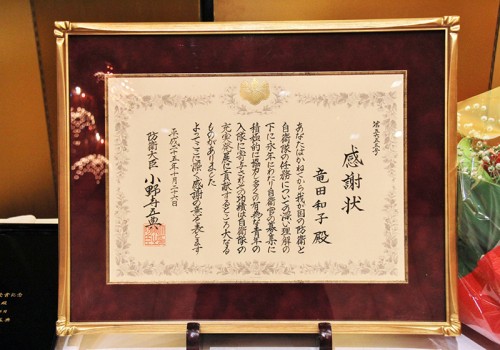 感謝状
竜田和子殿
あなたはかねてから我が国の防衛と
自衛隊の任務についての深い理解の
下に永年にわたり自衛官の募集に
積極的に協力し多くの有為な青年の
入隊に寄与されその功績は自衛隊の
充実発展に貢献するところ大なる
ものがありました
よってここに深く感謝の意を表します
平成二十五年十月二十六日
防衛大臣 小野寺五典